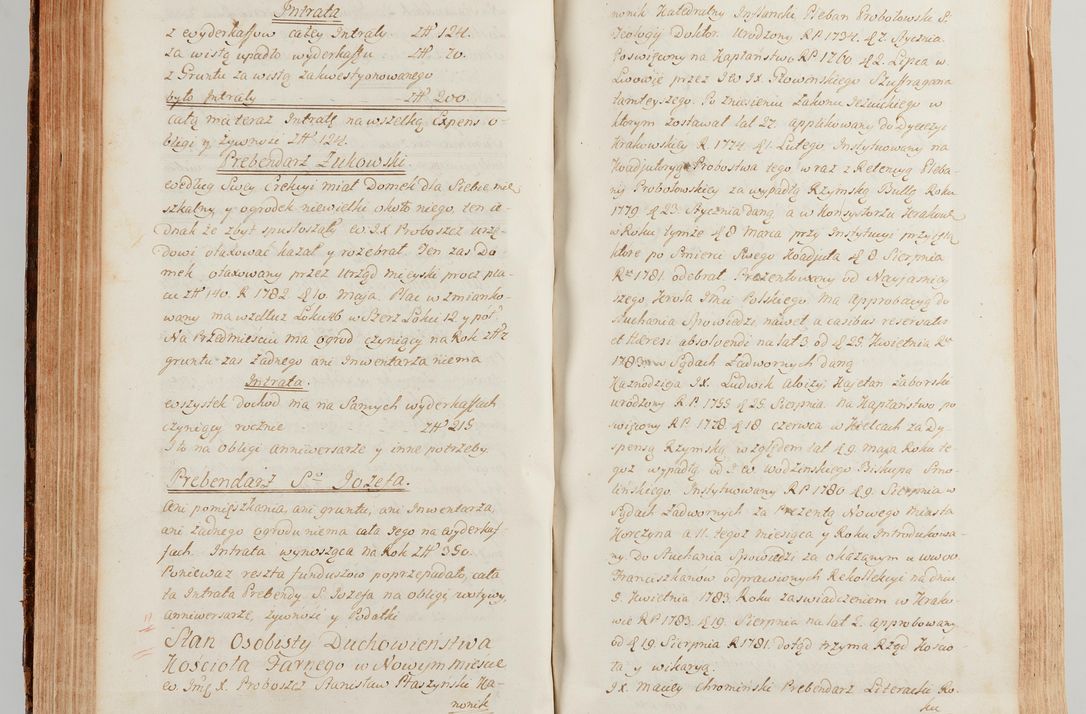 Intrata
z wyderkaffow całey Intraty zł 124.
za wisłą upadło wyderkaffu zł 70.
z Gruntu za wisłą zakwestyonowanego
było Intraty zł 200.
całą ma teraz Intratę na wszelką Expens o-
bligi y żywność zł 124.
Prebendarz Żukowski.
według Swey Erekcyi miał Domek dla Siebie mie
szkalny y ogrodek niewielki około niego, ten ie-
dnak że zbyt spustoszały w. IX Proboszcz urzę-
dowi otaxować kazał y rozebrał. Ten zas Do
mek otaxowany przez Urząd mieyski procz pla-
cu zł 140. R. 1782 d 10. maja. Plac wzmianko-
wany ma wzdłuż Łokci 26 wszerz Łokci 12 y poł
Na Przedmieściu ma ogrod czyniący na Rok zł 2
gruntu zas żadnego ani Inwentarza niema
Intrata.
wszystek dochod ma na Samych wyderkaffach
czyniący rocznie zł 215
Ito na obligi anniwersarze y inne potrzeby
Prebendarz S° Jozefa.
ani pomięszkania, ani gruntu, ani Inwentarza,
ani żadnego ogrodu niema cała Jego na wyderkaf-
fach. Intrata wynosząca na Rok zł 350.
Ponieważ reszta funduszow poprzepadało, cała
ta Intrata Prebendy S. Jozefa na obligi wotywy
anniwersarze, żywność y Podatki
Stan Osobisty Duchowieństwa
Kościoła Farnego w Nowym mieście
w. Imć X. Proboszcz Stanisław Ptaszyński Ka-
nonik
nonik Katedralny Inflancki, Pleban Probołowski S.
Teologij Doktor. Urodzony R.P. 1734. d 7. Stycznia.
Poświęcony na Kapłaństwo R.P. 1760. d 2. Lipca w
Lwowie przez J.W. IX. Głowieńskiego Szuffragana
tamteyszego. Po zniesieniu zakonu Jezuickiego w
ktorym zostawał lat 27. applikowany do Dyecezyi
Krakowskiey R. 1774 d 1. Lutego Instytuowany na
Koadjutoryą Probostwa tego wraz z Retencyą Pleba-
nij Probołowskiey za wypadłą Rzymską Bullą Roku
1779 d 23. Stycznia daną a w Konsystorzu Krakow
w Roku tymże d 8 marca przy Instytucyi przyiętą
ktore po Smierci Swego Koadjuta d 8. Sierpnia
R 1781 odebrał. Prezentowany od Nayjasniey
szego Krola Imci Polskiego. Ma approbacyą do
słuchania Spowiedzi, nawet a casibus reservatis
et Hæresi absolvendi na lat 3 od d 25. Kwietnia R
1783 w Sądach Zadwornych daną
Kaznodzieja IX. Ludwik Aloizy Kajetan Zaborski
urodzony R.P. 1755 d 25. Sierpnia. na Kapłaństwo po
święcony R.P. 1778 d 18 czerwca w Kielcach za Dy
spensą Rzymską względem lat d 9. maja Roku te-
goż wypadłą od J.W. Wodzińskiego Biskupa Smo-
leńskiego. Instytuowany R.P. 1780 d 9. Sierpnia w
Sądach Zadwornych za Prezentą Nowego Miasta
Korczyna a 11. tegoż miesiąca y Roku Introdukowa-
ny. do słuchania Spowiedzi za okazanym u WWOO
Franciszkanów odprawionych Rekollekcyi na dniu
9 Kwietnia 1783. Roku zaswiadczeniem w Krako-
wie R.P. 1783. d 19. Sierpnia na lat 2. approbowany
od d 19. Sierpnia R 1781. dotąd trzyma Rząd Kościo-
ła y wikaryą.
IX. Maciey Chromiński Prebendarz Literacki Ro-
ku